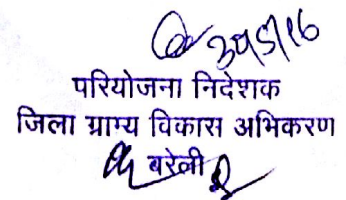 परियोजना निदेशक
जिला ग्राम्य विकास अभिकरण
बरेली